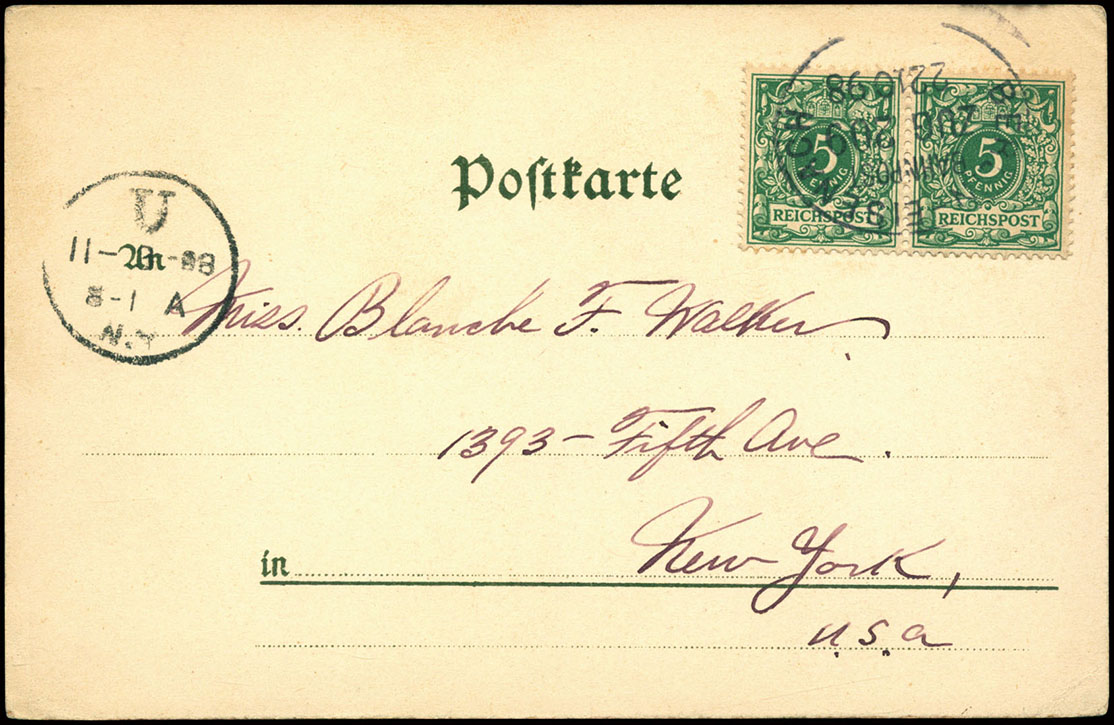 Postkarte
5
PFENNIG
REICHSPOST
5
PFENNIG
REICHSPOST
22 10 98
ZUG
BAHNPOST
U
8-1 A
N.Y
An
Miss. Blanche F. Walker
1393 – Fifth Ave.
in
New York,
U.S.A